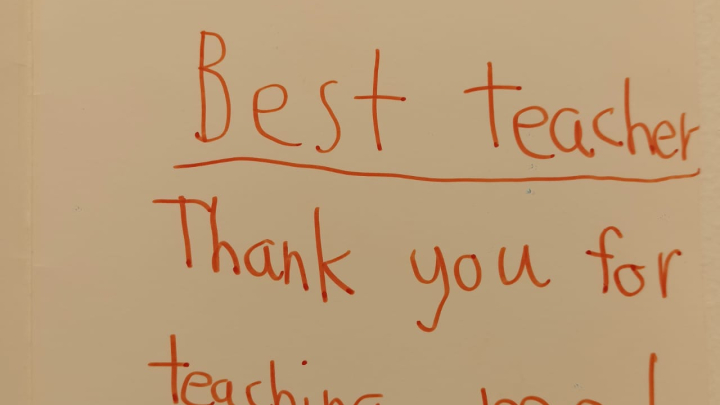 Best teacher
Thank you for
teaching